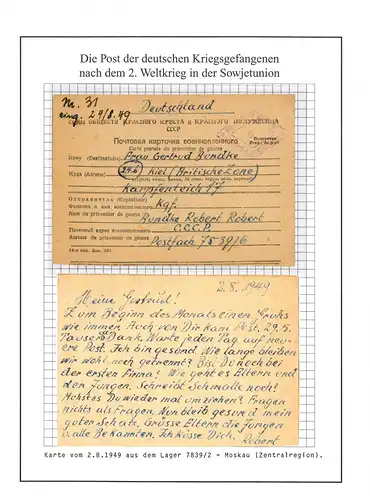 Die Post der deutschen Kriegsgefangenen
nach dem 2. Weltkrieg in der Sowjetunion
Nr. 31
eing. 29/8.49
Deutschland
СОЮЗ ОБЩЕСТВ КРАСНОГО КРЕСТА и КРАСНОГО ПОЛУМЕСЯЦА
СССР
Почтовая карточка военнопленного
Carte postale du prisonnier de guerre
Кому (Destinataire) Frau Gertrud Rundke
Куда (Adresse) (24b) Kiel (Britische Zone)
Karpfenteich 17
Отправитель (Expéditeur)
Фамилия и имя военнопленного Kgf.
Nom du prisonnier de guerre
Rundke Robert Robert
Почтовый адрес военнопленного C.C.C.P.
Adresse du prisonnier de guerre
Postfach 7839/2
2.8.1949
Meine Gertrud!
Zum Beginn des Monats einen Gruß
wie immer. Auch von Dir kam Post. 29.5.
Tausend Dank. Warte jeden Tag auf neu-
ere Post. Ich bin gesund. Wie lange bleiben
wir wohl noch getrennt? Bist Du noch bei
der ersten Firma? Wie geht es Eltern und
den Jungen. Schreibt Schmalle noch?
Möchtest Du wieder mal umziehen? Fragen
nichts als Fragen. Nun bleib gesund mein
guter Schatz. Grüsse Eltern die Jungen
u. alle Bekannten. Ich küsse Dich. Robert
Karte vom 2.8.1949 aus dem Lager 7839/2 = Moskau (Zentralregion).